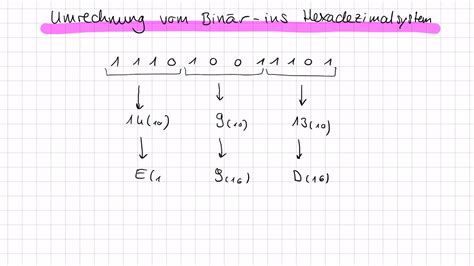 Umrechnung vom Binär-ins Hexadezimalsystem
1 1 1 0 1 0 0 1 1 1 0 1
14(10) 9(10) 13(10)
E(1 9(16) D(16)